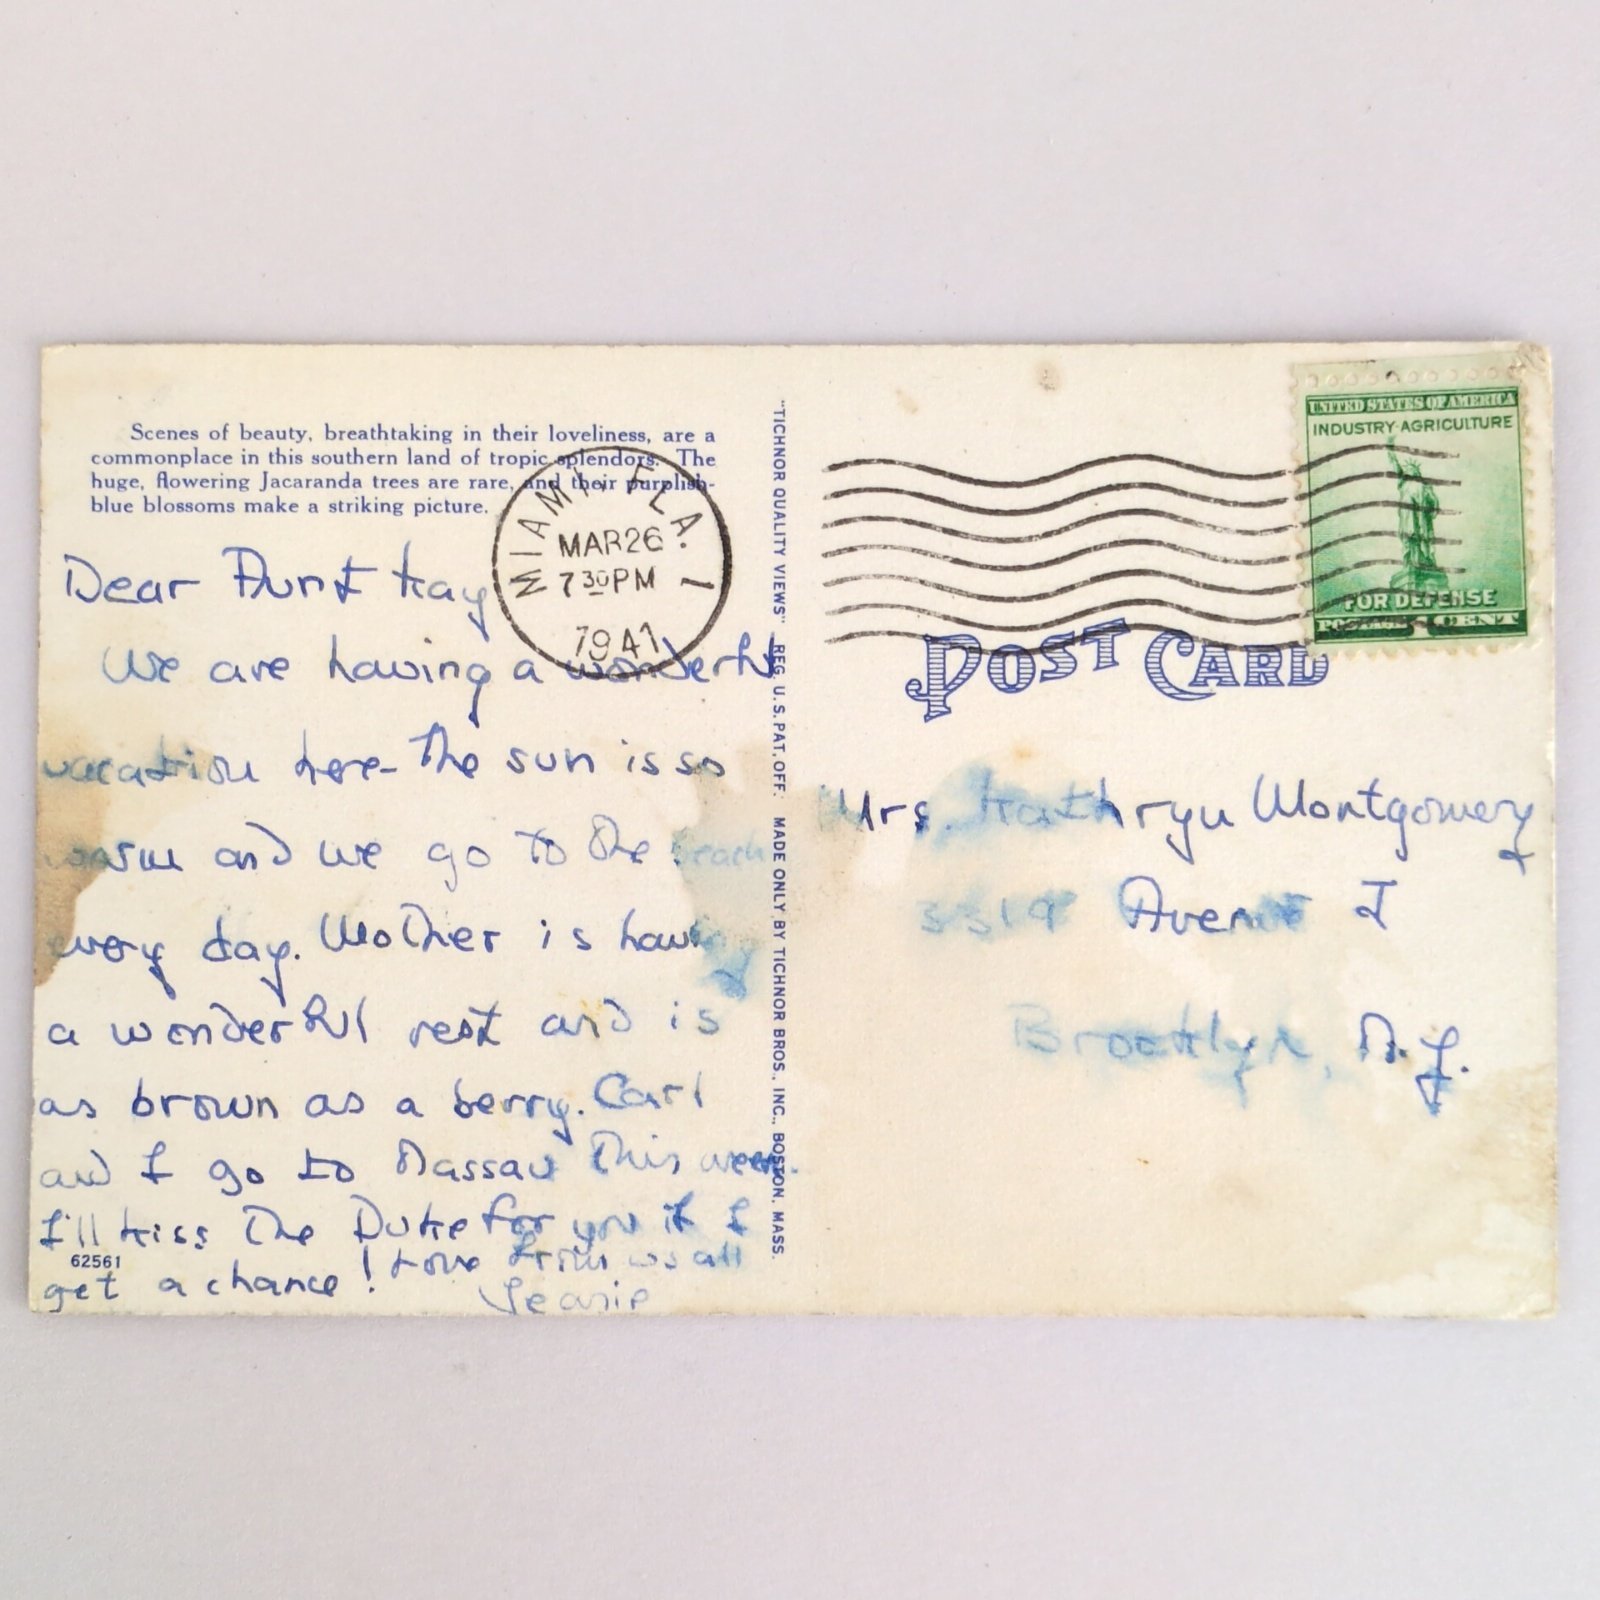 Scenes of beauty, breathtaking in their loveliness, are a
commonplace in this southern land of tropic splendors. The
huge, flowering Jacaranda trees are rare, and their purplish-
blue blossoms make a striking picture.
MIAMI, FLA. 1
MAR 26
7 30 PM
1941
Dear Aunt Kay
We are having a wonderful
vacation here - The sun is so
warm and we go to the beach
every day. Mother is having
a wonderful rest and is
as brown as a berry. Carl
and I go to Nassau this week.
I'll kiss the Duke for you if I
get a chance! Love from us all
Jeanie
62561
"TICHNOR QUALITY VIEWS" REG. U. S. PAT. OFF. MADE ONLY BY TICHNOR BROS., INC., BOSTON, MASS.
UNITED STATES OF AMERICA
INDUSTRY·AGRICULTURE
FOR DEFENSE
POSTAGE 1 CENT
POST CARD
Mrs. Kathryn Montgomery
3319 Avenue I
Brooklyn, N.Y.